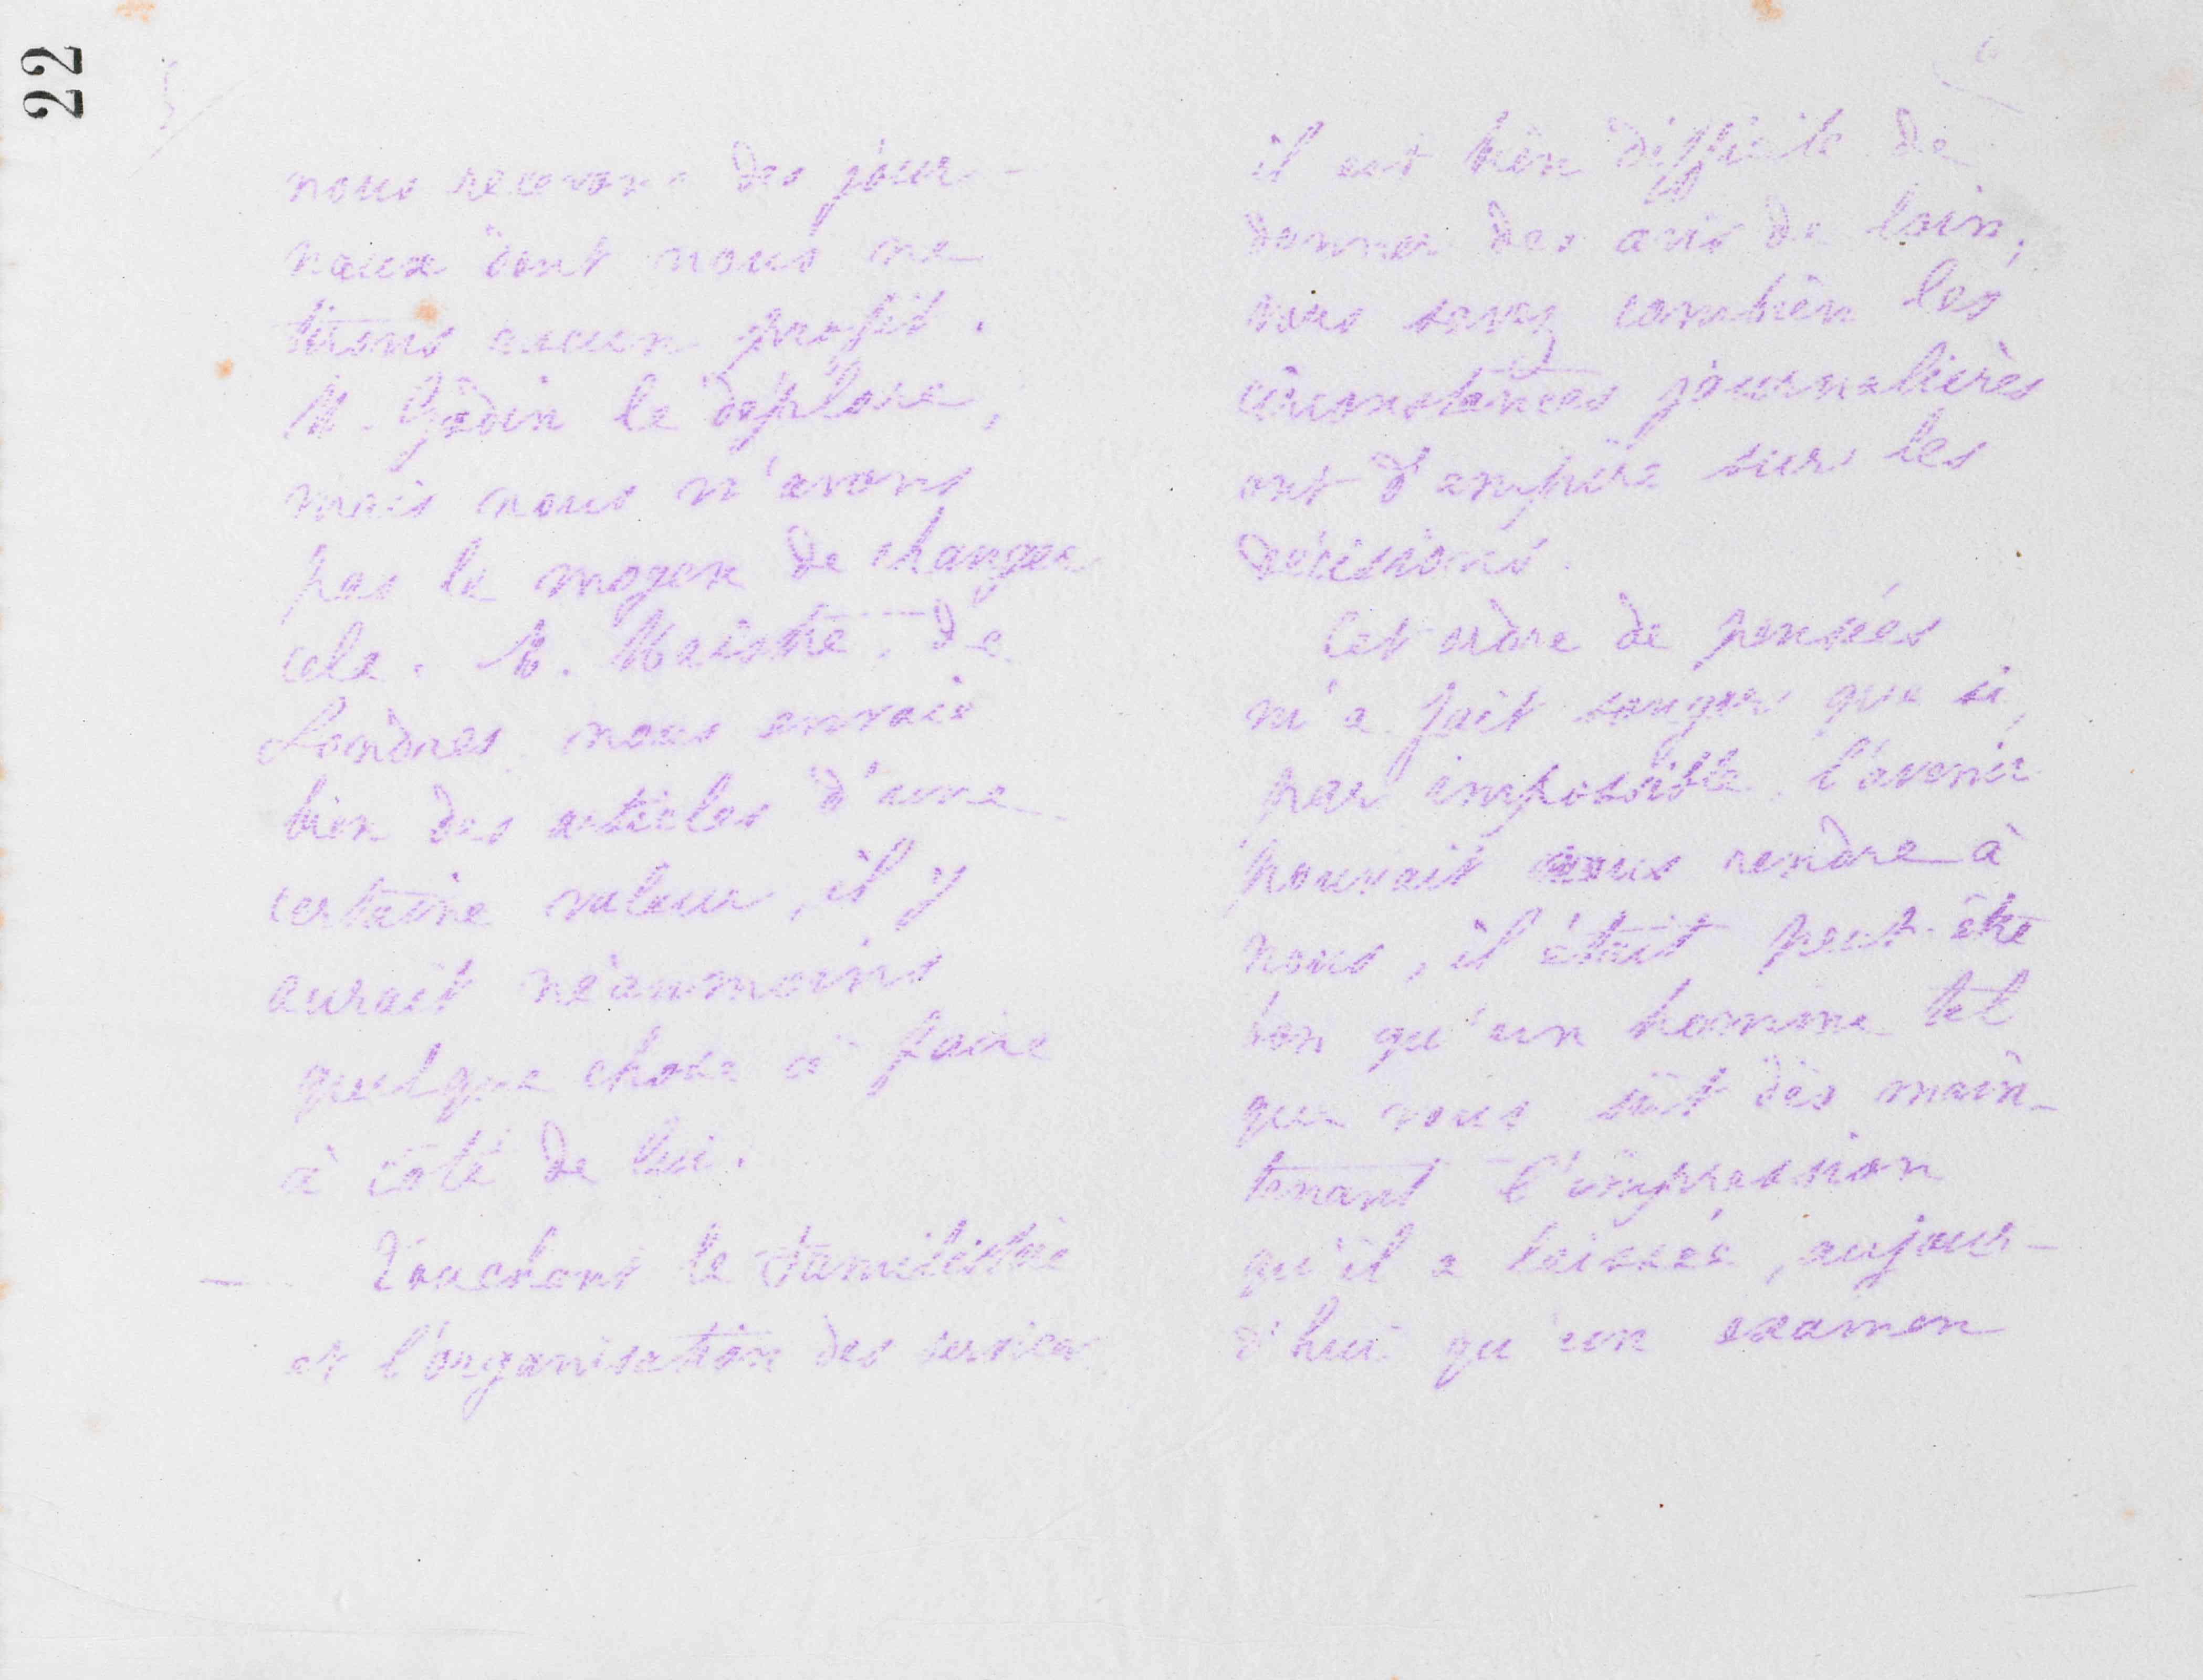 22
5
nous recevons des jour-
naux dont nous ne
tirons aucun profit.
M. Godin le déplore,
mais nous n'avons
pas le moyen de changer
cela. M. Maistre, de
Londres, nous envoie
bien des articles d'une
certaine valeur, il y
aurait néanmoins
quelque chose à faire
à côté de lui.
— Touchant le Familistère
et l'organisation des services
6
il est bien difficile de
donner des avis de loin;
vous savez combien les
circonstances journalières
ont d'empire sur les
décisions.
Cet ordre de pensées
m'a fait songer que si,
par impossible, l'avenir
pouvait vous rendre à
nous, il était peut-être
bon qu'un homme tel
que vous sût dès main-
tenant l'impression
qu'il a laissée, aujour-
d'hui qu'un examen